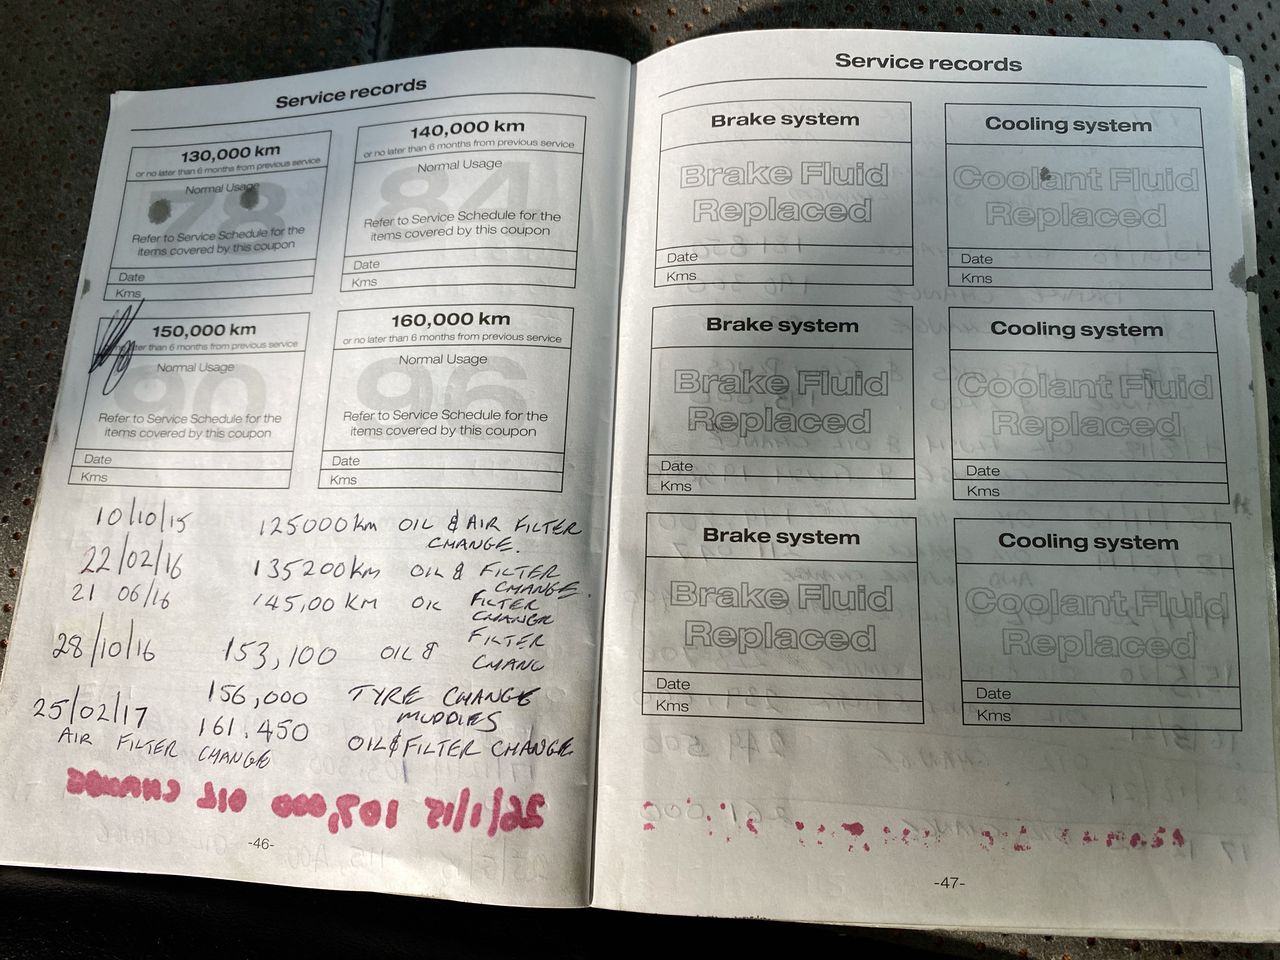 Service records
130,000 km
or no later than 6 months from previous service
78
Normal Usage
Refer to Service Schedule for the
items covered by this coupon
Date
Kms
140,000 km
or no later than 6 months from previous service
84
Normal Usage
Refer to Service Schedule for the
items covered by this coupon
Date
Kms
150,000 km
later than 6 months from previous service
90
Normal Usage
Refer to Service Schedule for the
items covered by this coupon
Date
Kms
160,000 km
or no later than 6 months from previous service
96
Normal Usage
Refer to Service Schedule for the
items covered by this coupon
Date
Kms
10/10/15 125000km OIL & AIR FILTER
CHANGE.
22/02/16 135200km OIL & FILTER
CHANGE.
21 06/16 145,00 KM OIL FILTER
CHANGE
28/10/16 153,100 OIL & FILTER
CHANG
156,000 TYRE CHANGE
MUDDIES
25/02/17 161.450 OIL & FILTER CHANGE
AIR FILTER CHANGE
26/1/15 107,000 OIL CHANGE
-46-
Service records
Brake system
Brake Fluid
Replaced
Date
Kms
Cooling system
Coolant Fluid
Replaced
Date
Kms
Brake system
Brake Fluid
Replaced
Date
Kms
Cooling system
Coolant Fluid
Replaced
Date
Kms
Brake system
Brake Fluid
Replaced
Date
Kms
Cooling system
Coolant Fluid
Replaced
Date
Kms
-47-